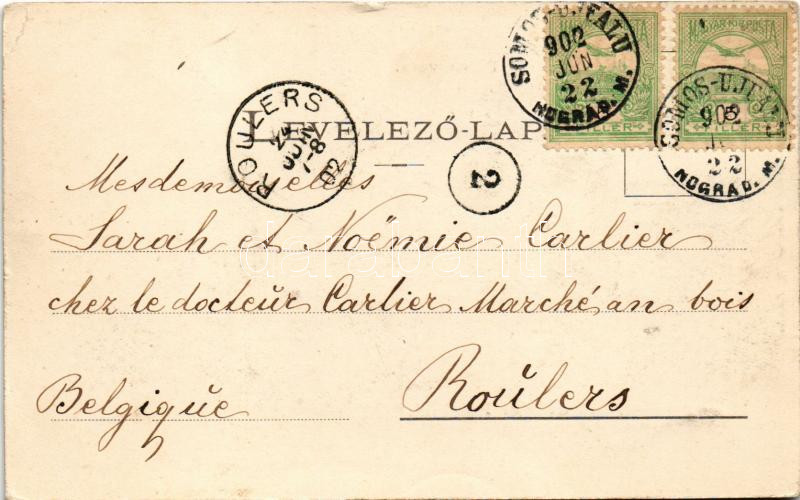 SOMOS-UJFALU
902
JUN
22
NOGRAD. M.
MAGYAR KIR. POSTA
SOMOS-UJFALU
902
22
NOGRAD. M.
5
FILLER
ROULERS
24
JUIN
7-8
02
LEVELEZŐ-LAP
2
Mesdemoiselles
Sarah et Noëmie Carlier
chez le docteur Carlier Marché au bois
Roulers
Belgique
darabanth